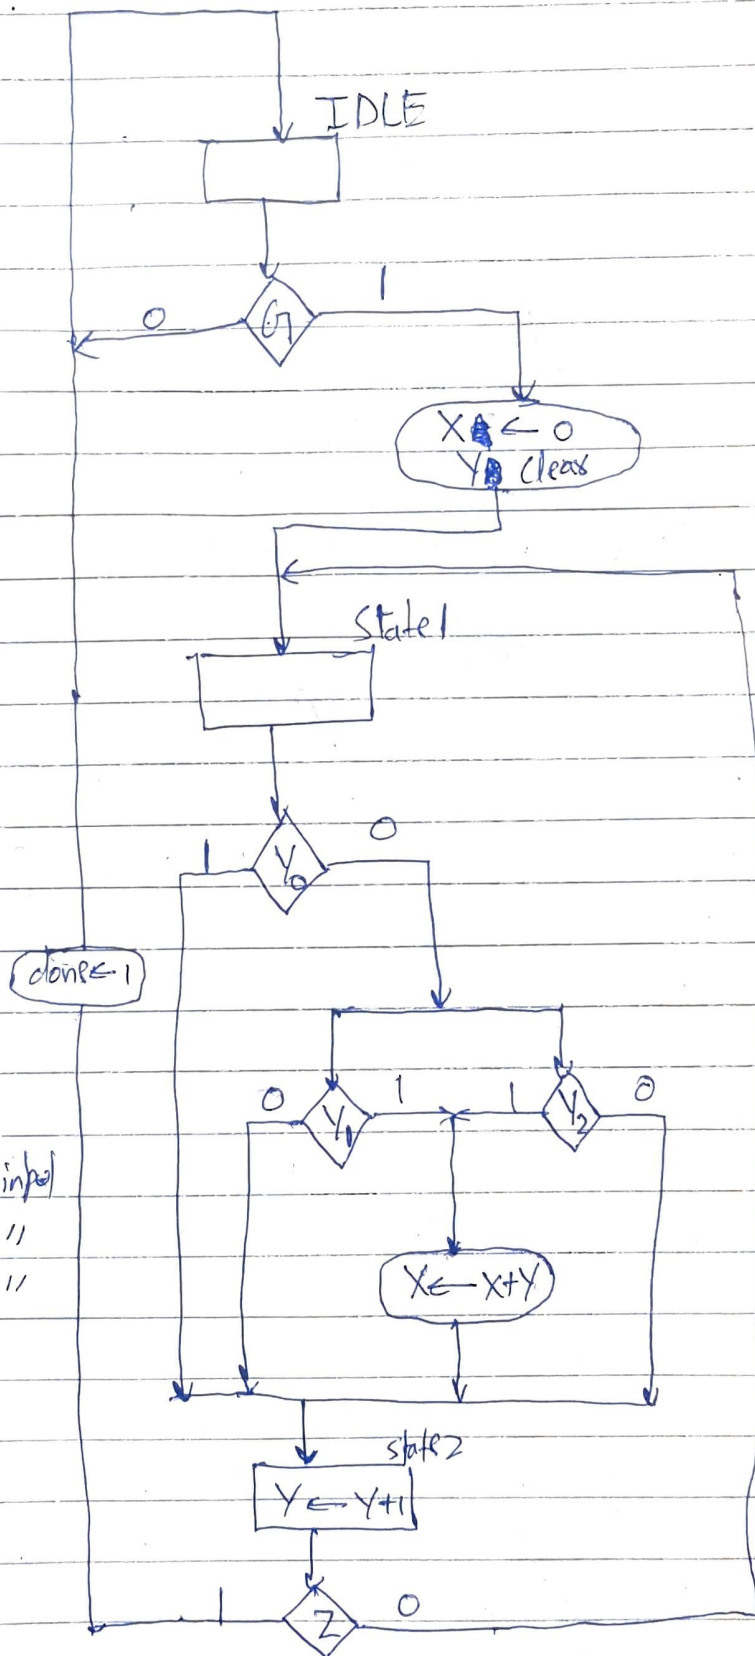 IDLE
G
0
1
X ← 0
Y Clear
State1
Y0
1
0
done ← 1
Y1
0
1
Y2
1
0
input
"
"
X ← X+Y
state2
Y ← Y+1
Z
1
0